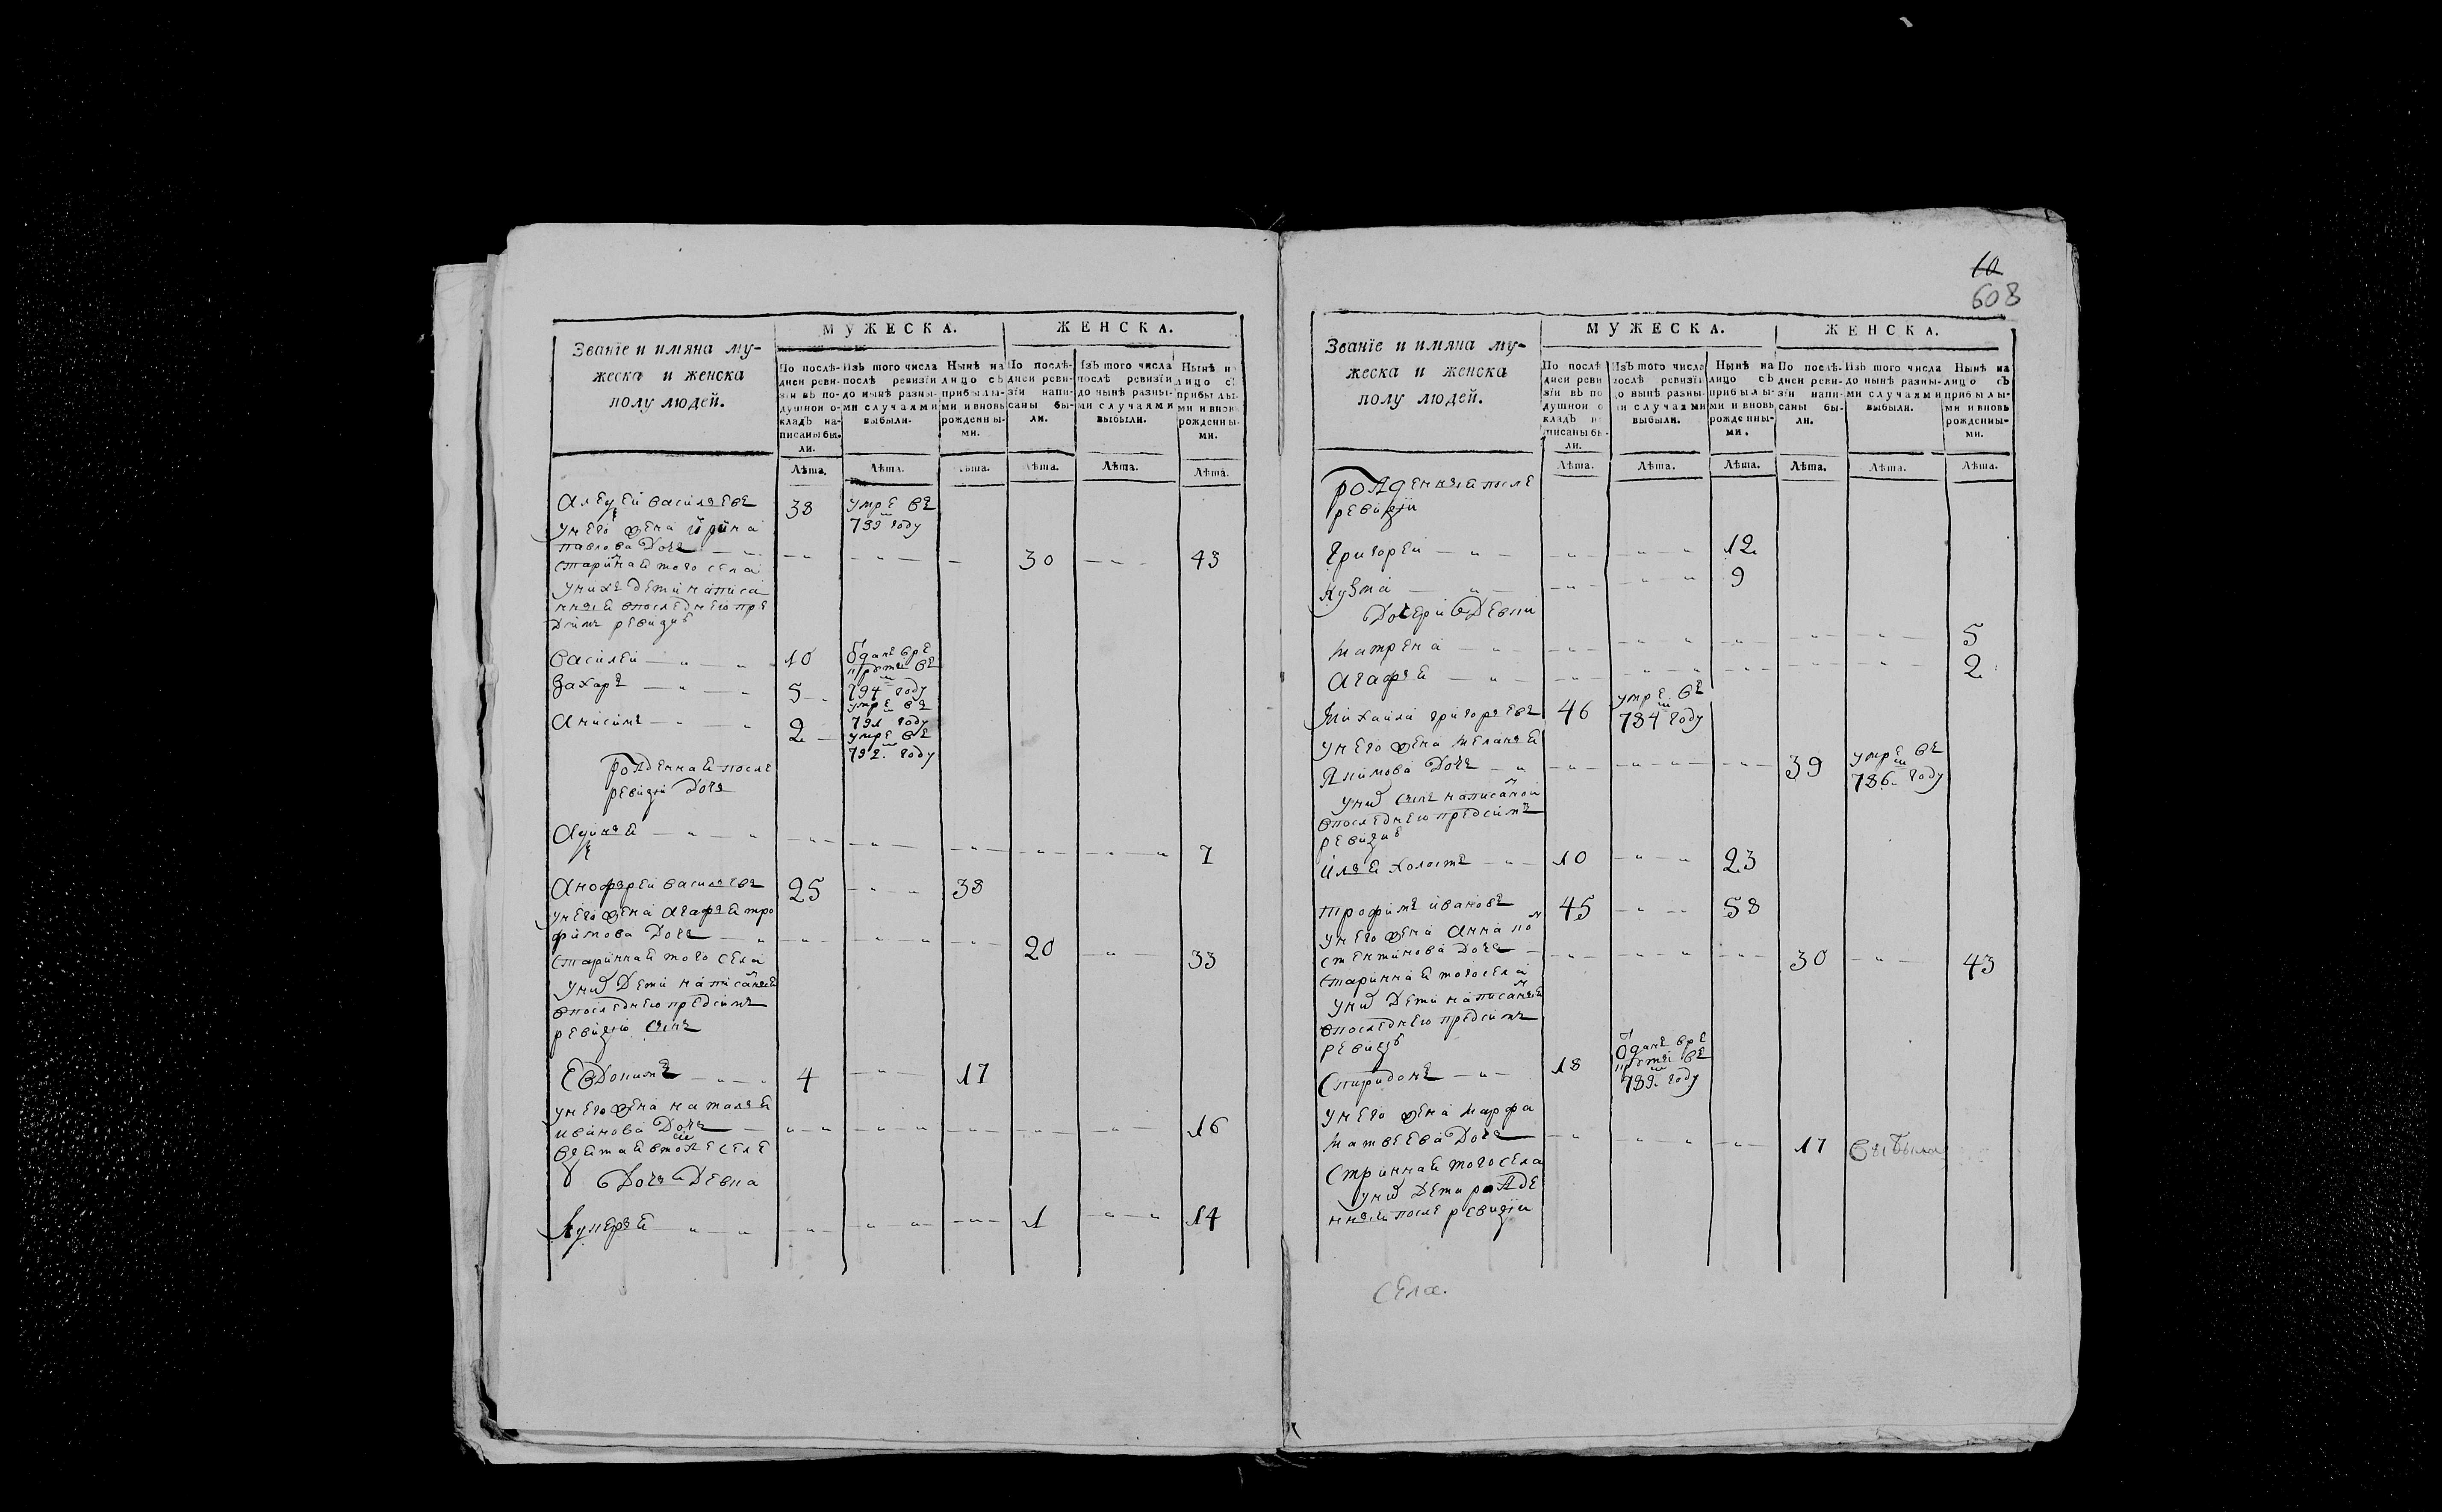 10
608
Званїе и имяна му-
жеска и женска
полу людей.
МУЖЕСКА.
ЖЕНСКА.
По послѣ-
дней реви-
зїи въ по-
душной о-
кладъ на-
писаны бы-
ли.
Изъ того числа
послѣ ревизїи
до нынѣ разны-
ми случаями
выбыли.
Нынѣ на
лицо съ
прибылы-
ми и вновь
рожденны-
ми.
По послѣ-
дней реви-
зїи напи-
саны бы-
ли.
Изъ того числа
послѣ ревизїи
до нынѣ разны-
ми случаями
выбыли.
Нынѣ на
лицо съ
прибылы-
ми и вновь
рожденны-
ми.
Лѣта. Лѣта. Лѣта. Лѣта. Лѣта. Лѣта.
Алеѯей васильевъ 38 умре въ
789 году
унего жена ирина
павлова дочь 30 43
стариная того села
унихъ дети написа
нныя впоследнею пре
дсимъ ревизию
василей 10 отданъ вре
круты въ
794 году
захаръ 5 умре въ
791 году
анисимъ 2 умре въ
792 году
рожденная после
ревизии дочь
аѯинья 7
анофрей васильевъ 25 38
унего жена агафья тро
фимова дочь 20 33
старинная того села
уних дети написаныя
впоследнею предсимъ
ревизию сынъ
Евдокимъ 4 17
унего жена наталья
иванова дочь 16
взятая втомже селе
дочь девка
лукерья 1 14
Званїе и имяна му-
жеска и женска
полу людей.
МУЖЕСКА.
ЖЕНСКА.
По послѣ-
дней реви-
зїи въ по-
душной о-
кладъ на-
писаны бы-
ли.
Изъ того числа
послѣ ревизїи
до нынѣ разны-
ми случаями
выбыли.
Нынѣ на
лицо съ
прибылы-
ми и вновь
рожденны-
ми.
По послѣ-
дней реви-
зїи напи-
саны бы-
ли.
Изъ того числа
до нынѣ разны-
ми случаями
выбыли.
Нынѣ на
лицо съ
прибылы-
ми и вновь
рожденны-
ми.
Лѣта. Лѣта. Лѣта. Лѣта. Лѣта. Лѣта.
рожденныя после
ревизїи
григорей 12
кузма 9
дочери девки
матрена 5
агафья 2
михаила григорьевъ 46 умре въ
784 году
унего жена меланья
якимова дочь 39 умре въ
786 году
уних сынъ написаной
впоследнею предсимъ
ревизию
илья холостъ 10 23
трофимъ ивановъ 45 58
унего жена анна кон
стентинова дочь 30 43
старинная тогосела
уних дети написаныя
впоследнею предсимъ
ревизию
спиридонъ 18 отданъ вре
круты въ
789 году
унего жена марфа
матвеева дочь 17 выбыла
стринная тогосела
уних дети рожде
нныя после ревизїи
села